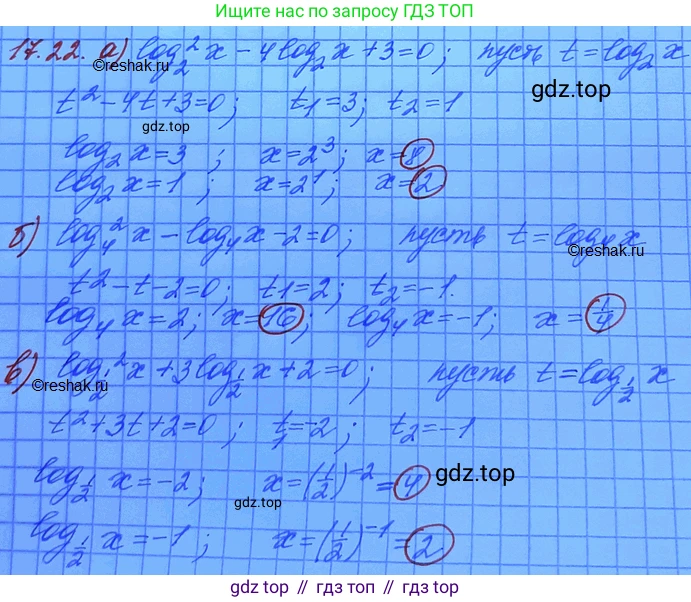 Ищите нас по запросу ГДЗ ТОП
17.22. а) log₂² x - 4 log₂ x + 3 = 0; пусть t = log₂ x
©reshak.ru
gdz.top
t² - 4t + 3 = 0; t₁ = 3; t₂ = 1
gdz.top
log₂ x = 3; x = 2³; x = 8
log₂ x = 1; x = 2¹; x = 2
б) log₄² x - log₄ x - 2 = 0; пусть t = log₄ x
©reshak.ru
t² - t - 2 = 0; t₁ = 2; t₂ = -1.
log₄ x = 2; x = 16; log₄ x = -1; x = 1/4
в) log²_{1/2} x + 3 log_{1/2} x + 2 = 0; пусть t = log_{1/2} x
©reshak.ru
t² + 3t + 2 = 0; t₁ = -2; t₂ = -1
log_{1/2} x = -2; x = (1/2)⁻² = 4
gdz.top
gdz.top
log_{1/2} x = -1; x = (1/2)⁻¹ = 2
gdz.top // гдз топ // гдз.top